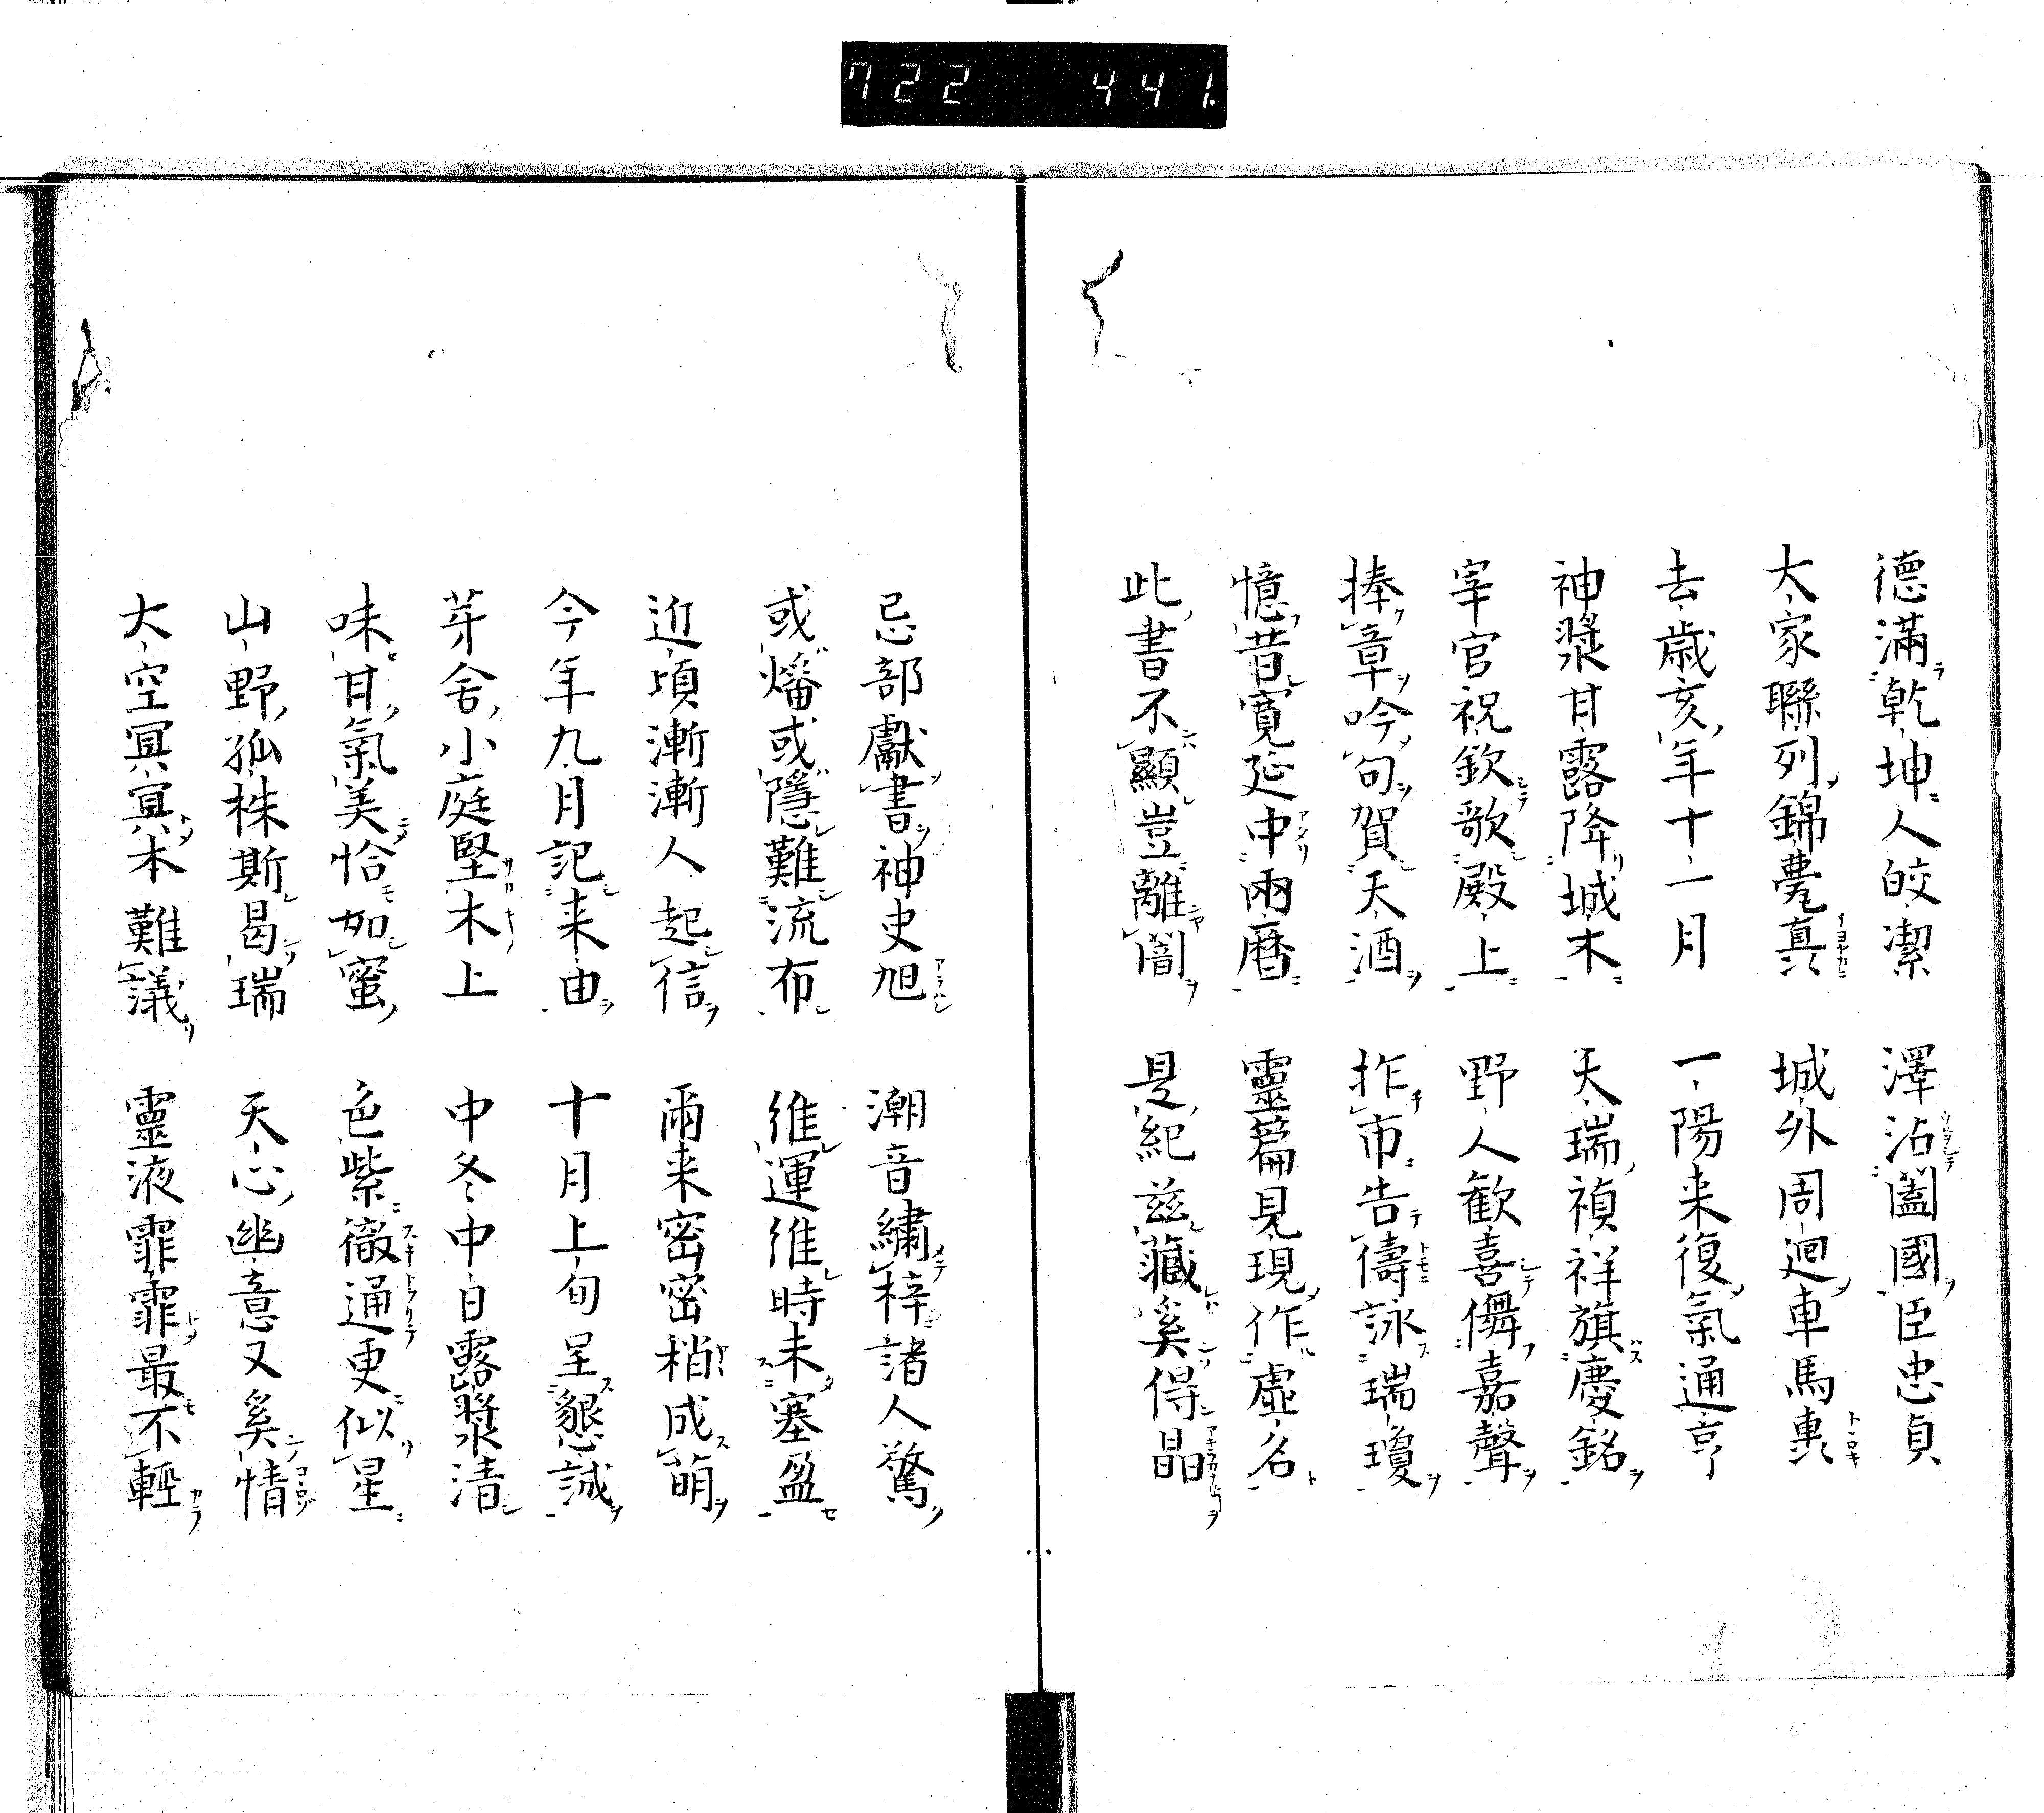 722 441
德滿乾坤人皎潔 澤沾闔國臣忠貞
大家聯列錦甍真 城外周迴車馬轟
去歳亥年十一月 一陽来復氣通亨
神漿甘露降城木 天瑞禎祥旗慶銘
宰官祝欽歌殿上 野人歡喜儛嘉聲
捧章吟句賀天酒 拃市告儔詠瑞瓊
憶昔寛延中兩暦 靈篇見現作虛名
此書不顯豈離闇 是紀兹藏奚得晶
忌部獻書神史旭 潮音繡梓諸人驚
或燔或隱難流布 維運維時未塞盈
近頃漸漸人起信 爾来密密稍成萌
今年九月記来由 十月上旬呈懇誠
芽舍小庭堅木上 中冬中日露漿清
味甘氣美恰如蜜 色紫徹通更似星
山野孤株斯曷瑞 天心幽意又奚情
大空冥冥本難議 靈液霏霏最不輕